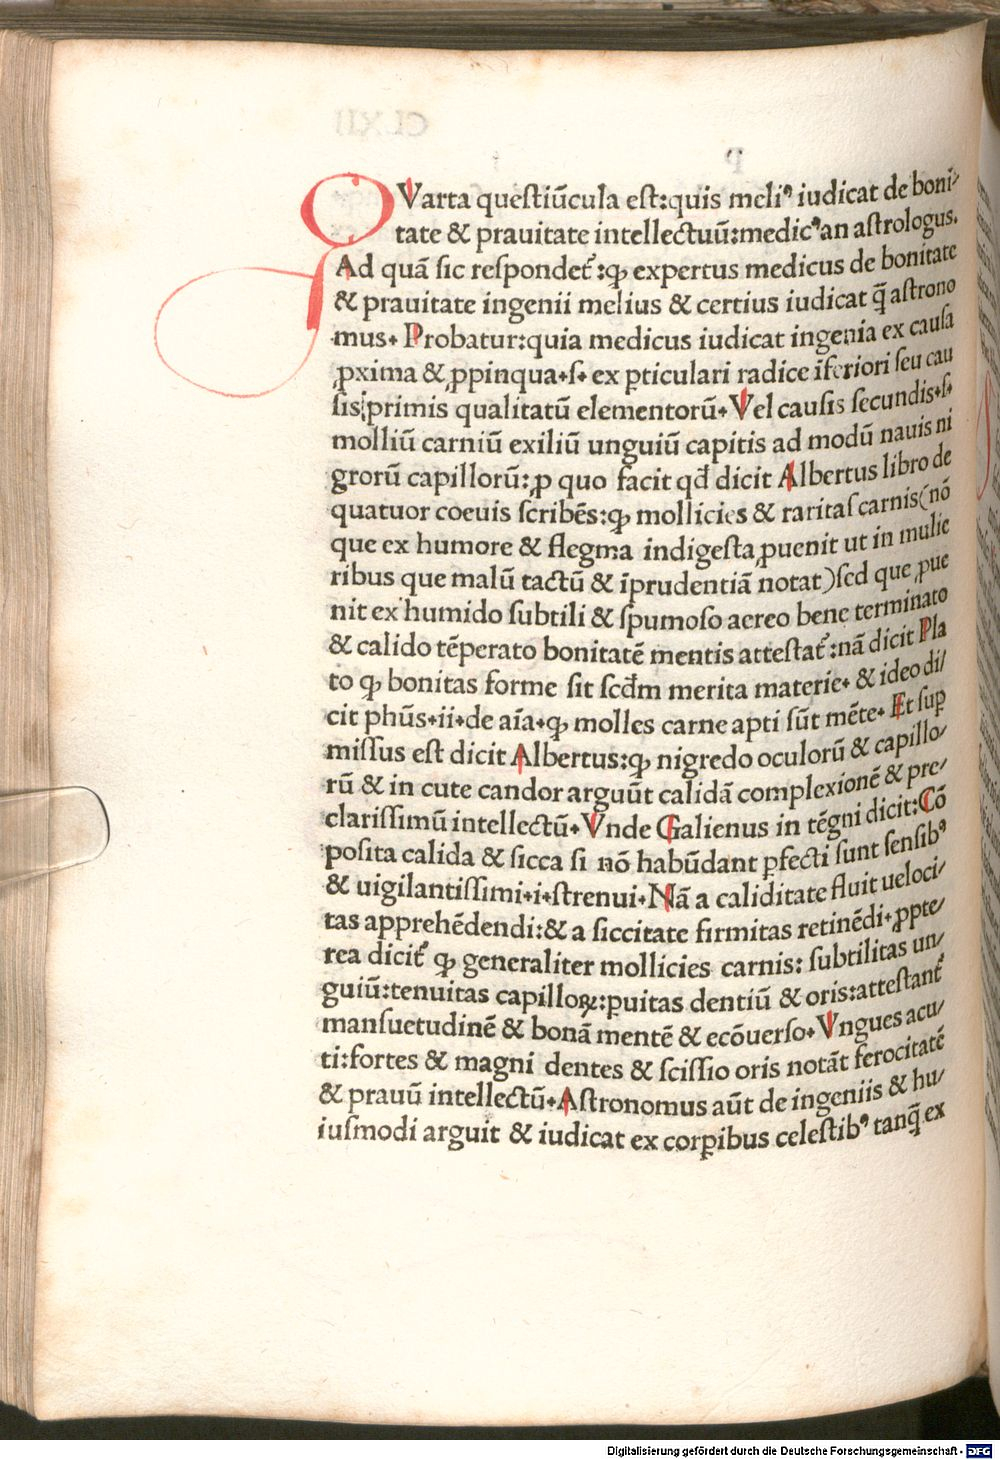 QVarta questiūcula est:quis meliꝰ iudicat de boni/
tate & prauitate intellectuū:medicꝰ an astrologus.
Ad quā sic respondet᷑:ꝙ expertus medicus de bonitate
& prauitate ingenii melius & certius iudicat q̄ astrono
mus. Probatur:quia medicus iudicat ingenia ex causa
ꝓxima & ꝓpinqua.s. ex ꝑticulari radice īferiori seu cau
sis primis qualitatū elementorū. Vel causis secundis.s.
molliū carniū exiliū unguiū capitis ad modū nauis ni
grorū capillorū:ꝓ quo facit qđ dicit Albertus libro de
quatuor coeuis scribēs:ꝙ mollicies & raritas carnis(nō
que ex humore & flegma indigesta ꝓuenit ut in mulie
ribus que malū tactū & īprudentiā notat)sed que ꝓue
nit ex humido subtili & spumoso aereo bene terminato
& calido tēperato bonitatē mentis attestat᷑:nā dicit Pla
to ꝙ bonitas forme sit scđm merita materie. & ideo di/
cit phūs.ii.de aīa.ꝙ molles carne apti sūt mēte. Et suꝑ
missus est dicit Albertus:ꝙ nigredo oculorū & capillo/
rū & in cute candor arguūt calidā complexionē & pre/
clarissimū intellectū. Vnde Galienus in tēgni dicit:Cō
posita calida & sicca si nō habūdant ꝑfecti sunt sensibꝰ
& uigilantissimi.i.strenui. Nā a caliditate fluit ueloci/
tas apprehēdendi:& a siccitate firmitas retinēdi.ꝓpte/
rea dicit᷑ ꝙ generaliter mollicies carnis: subtilitas un/
guiū:tenuitas capilloꝝ:ꝑuitas dentiū & oris:attestant᷑
mansuetudinē & bonā mentē & ecōuerso. Vngues acu/
ti:fortes & magni dentes & scissio oris notāt ferocitatē
& prauū intellectū. Astronomus aūt de ingeniis & hu/
iusmodi arguit & iudicat ex corꝑibus celestibꝰ tanq̄ ex
Digitalisierung gefördert durch die Deutsche Forschungsgemeinschaft - DFG